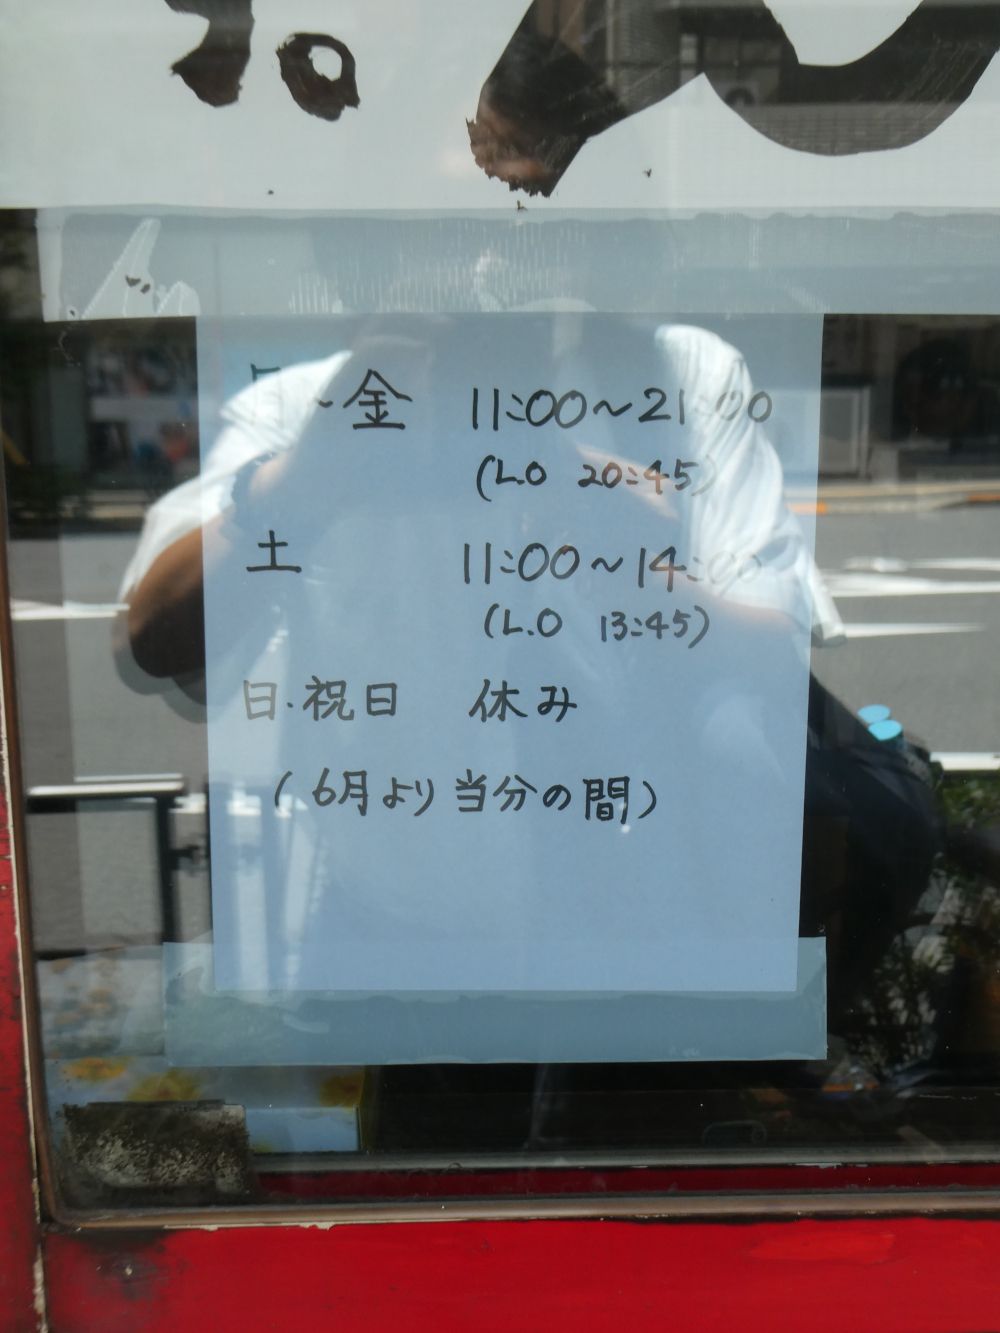 月〜金 11:00〜21:00
(L.O 20:45)
土 11:00〜14:00
(L.O 13:45)
日・祝日 休み
(6月より当分の間)